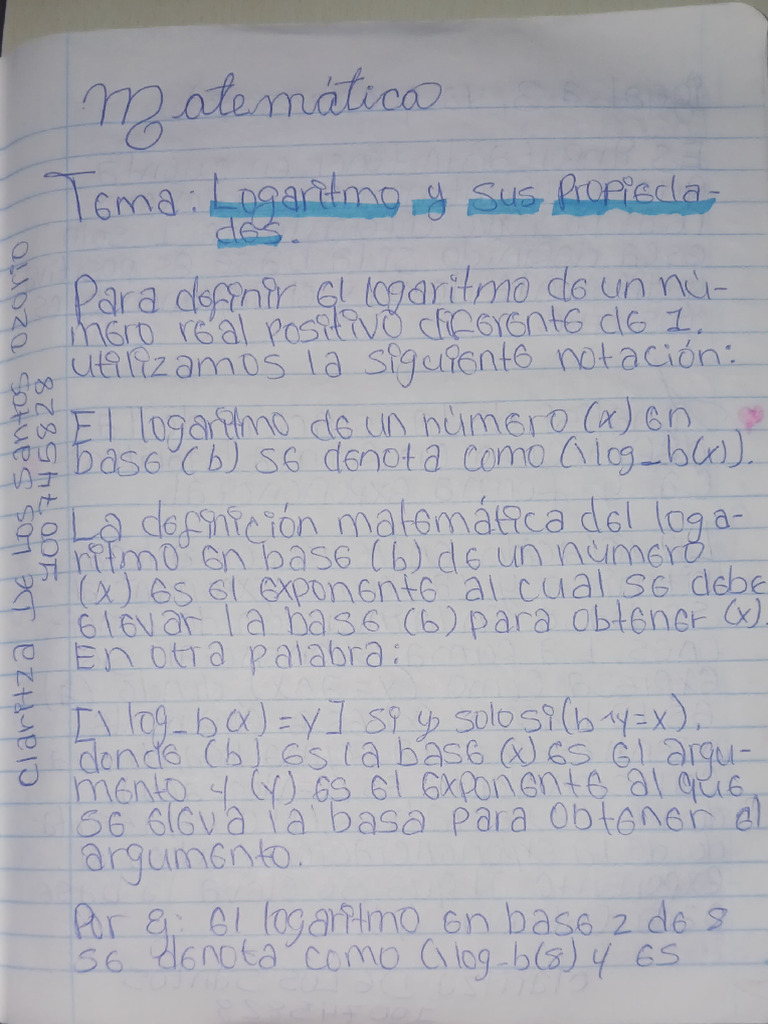 Matemática
Tema: Logaritmo y sus Propieda-
des.
Para definir el logaritmo de un nú-
mero real positivo diferente de 1.
utilizamos la siguiente notación:
El logaritmo de un número (x) en
base (b) se denota como (\log_b(x)).
La definición matemática del loga-
ritmo en base (b) de un número
(x) es el exponente al cual se debe
elevar la base (b) para obtener (x).
En otra palabra:
[\log_b(x)=y] si y solo si (b^y=x).
donde (b) es la base (x) es el argu-
mento y (y) es el exponente al que
se eleva la basa para obtener el
argumento.
Por ej: el logaritmo en base 2 de 8
se denota como (\log_b(8) y es
Claritza De Los Santos Ozorio
100745828